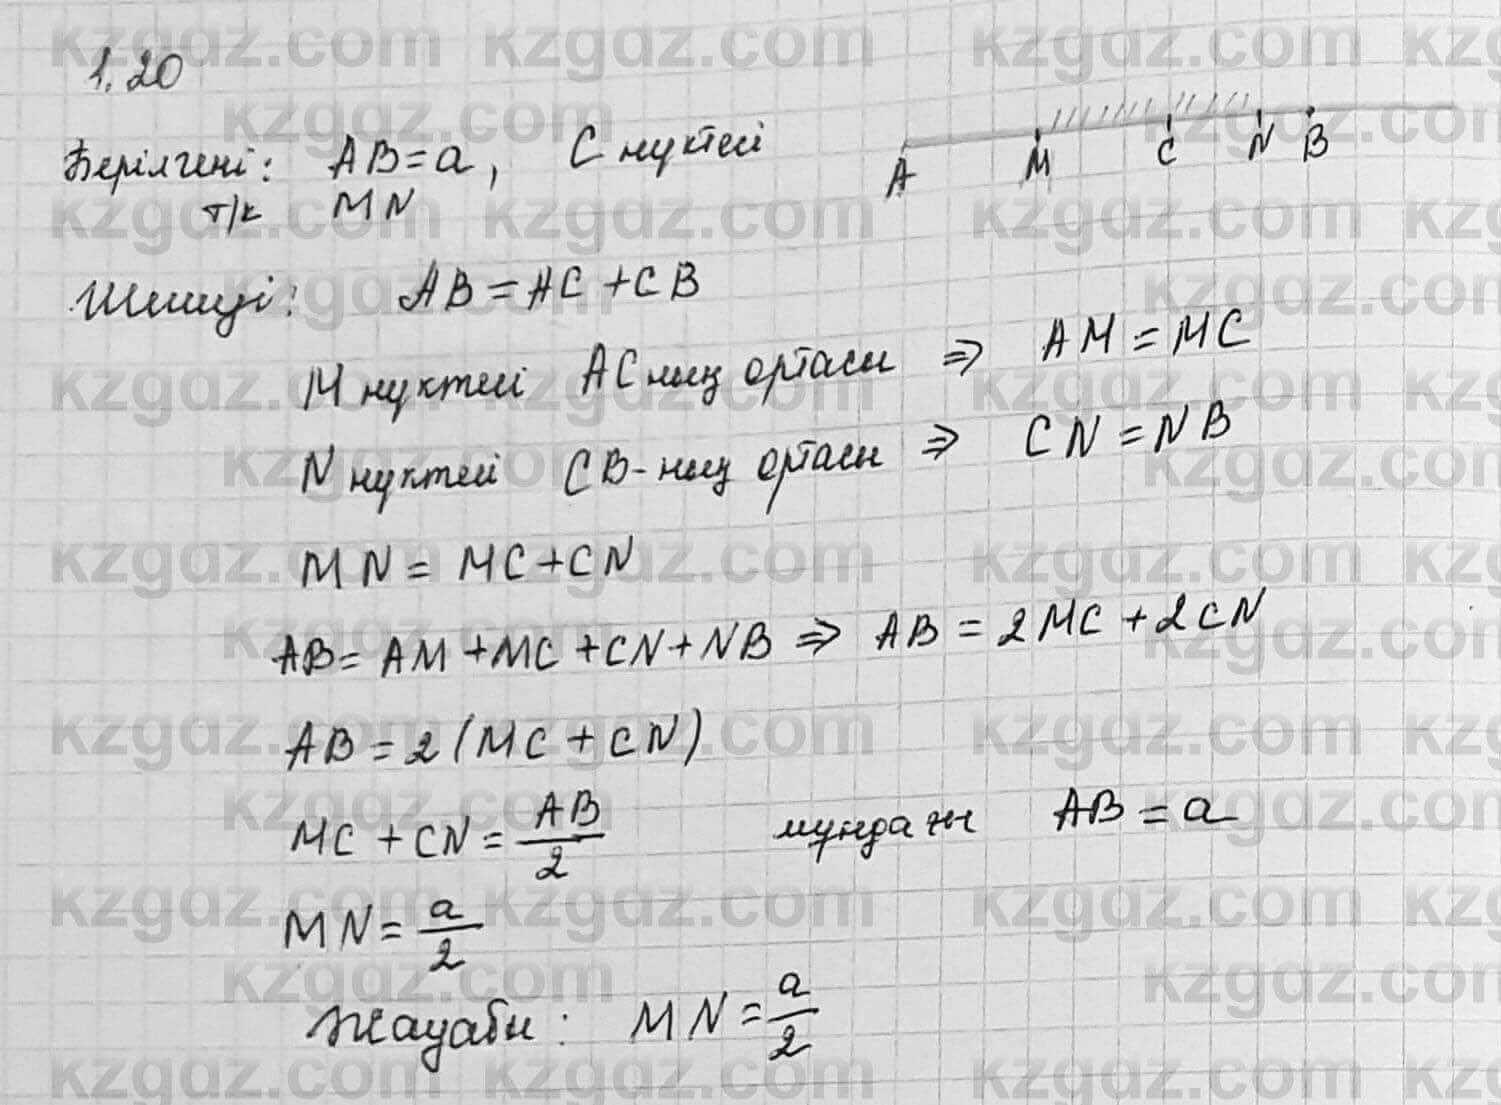 1.20
Берілгені: AB=a, C нүктесі
т/к MN
A M C N B
Шешуі: AB=AC+CB
M нүктесі AC ның ортасы ⇒ AM=MC
N нүктесі CB-ның ортасы ⇒ CN=NB
MN=MC+CN
AB=AM+MC+CN+NB ⇒ AB=2MC+2CN
AB=2(MC+CN)
MC+CN=AB/2 мұндағы AB=a
MN=a/2
Жауабы: MN=a/2
kzgdz.com